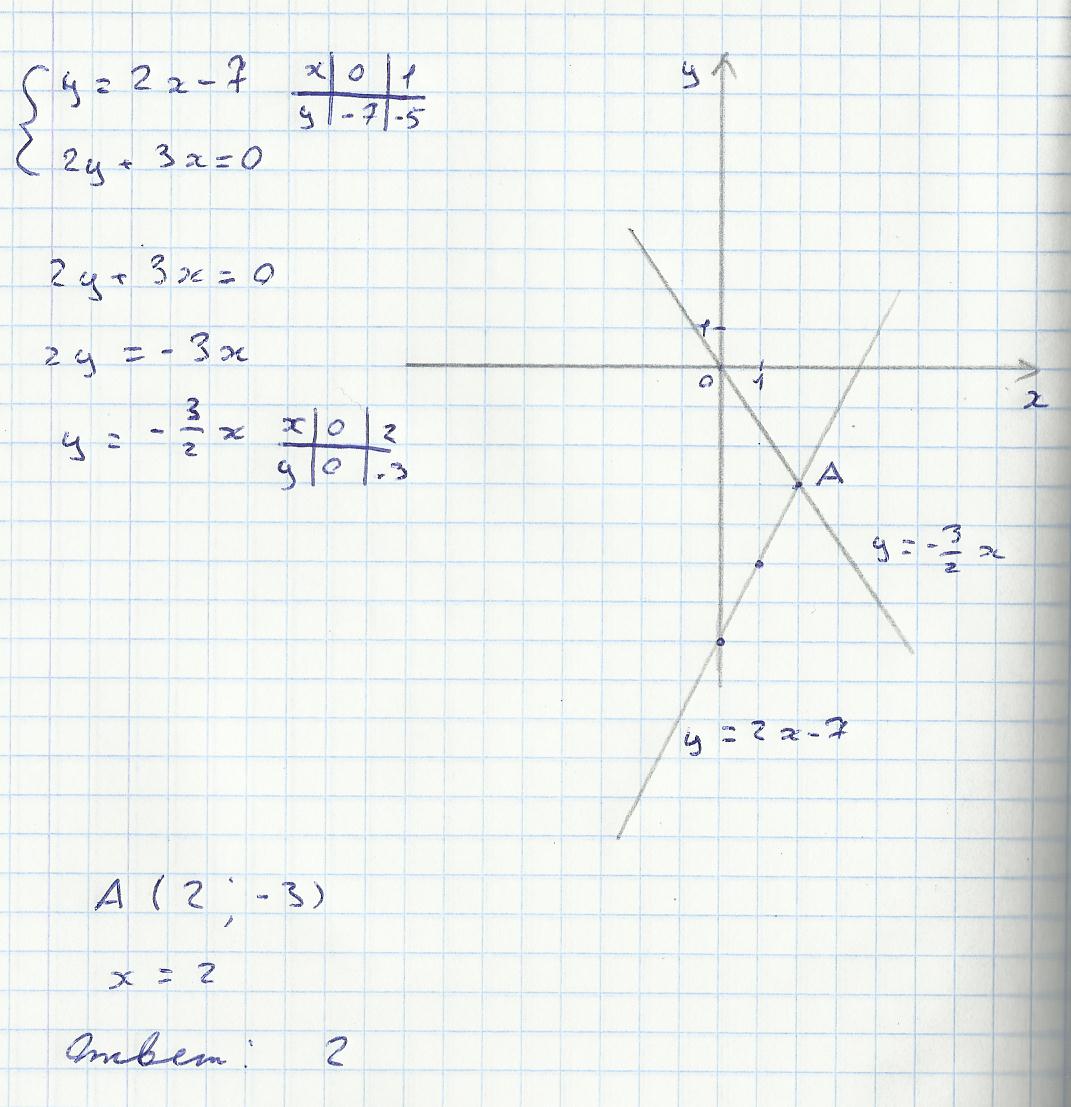 y = 2x - 7
x 0 1
y -7 -5
2y + 3x = 0
2y + 3x = 0
2y = -3x
y = -3/2 x
x 0 2
y 0 -3
y
1
0 1
x
A
y = -3/2 x
y = 2x - 7
A (2 ; -3)
x = 2
Ответ: 2